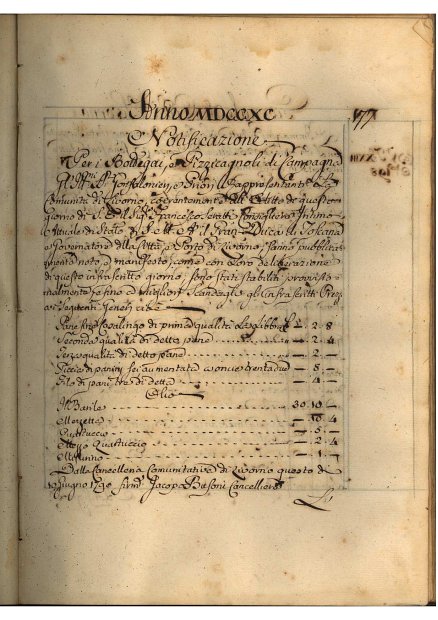 Anno MDCCXC
177
Notificazione
Per i Bottegai, e Pizzicagnoli di Campagna
Gl' Ill.mi SS. Gonfaloniere, e Priori Rappresentanti La
Comunità di Livorno, coerentemente all' Editto de' questo
giorno di S. E. il Sig. Francesco Seratti Consigliere Intimo
Attuale di Stato di S. A. R. il Gran Duca di Toscana
e Governatore della Città, e Porto di Livorno, fanno pubblica
mente noto, e manifesto, come con Loro deliberazione
di questo infrascritto giorno, sono stati stabiliti provvisio
nalmente, e fino a migliori Scandagli gl' infrascritti Prez
zi ai seguenti generi cioè
Pane fine Casalingo di prima qualità la Libbra — 2. 8
Seconda qualità di detto pane — 2. 4
Terza qualità di detto pane — 2. —
Piccia di panini sei aumentata a once trentadue — 8. —
Filo di pani tre di detta — 4. —
Olio
Il Barile 30. 10. —
Mezzetta — 10. 4
— 5. —
Mezzo Quartuccio — 2. 4
— 1. —
Dalla Cancelleria Comunitativa di Livorno questo dì
Giugno 1790 firm.
Jacopo
Cancelliere